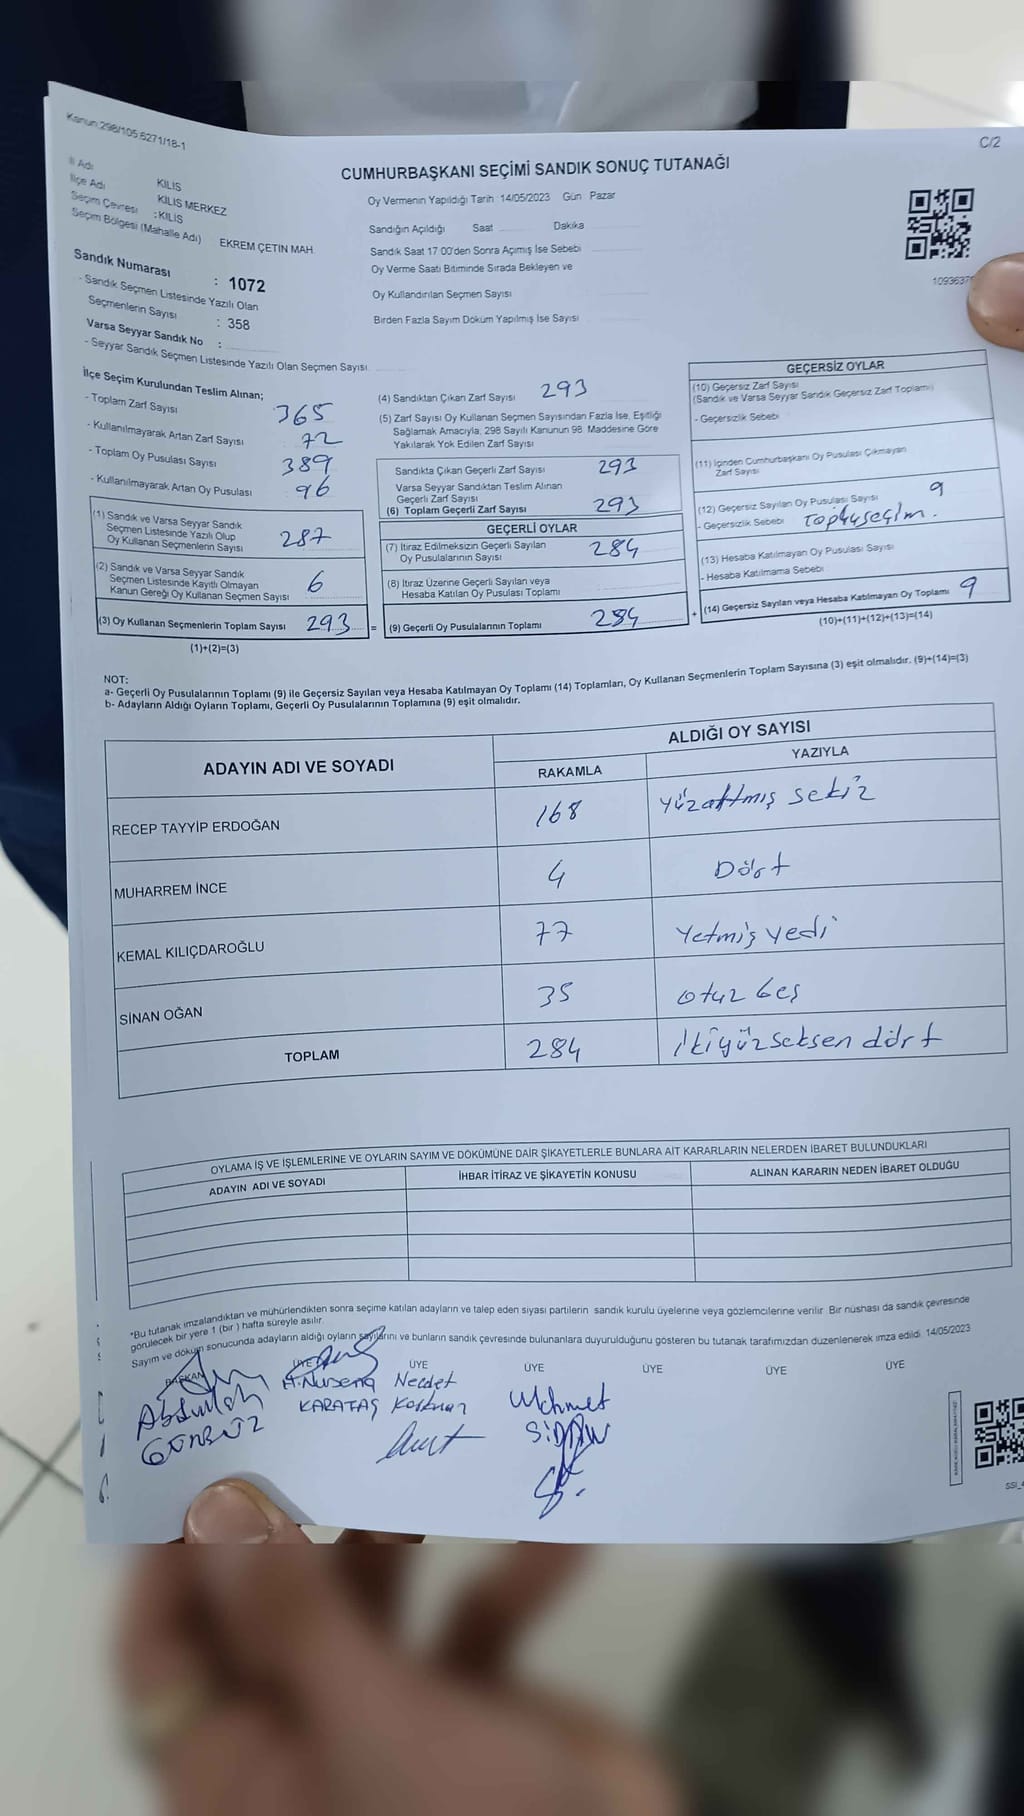 Kanun:298/105.6271/18-1
C/2
CUMHURBAŞKANI SEÇİMİ SANDIK SONUÇ TUTANAĞI
İl Adı KİLİS
İlçe Adı KİLİS MERKEZ
Seçim Çevresi :KİLİS
Seçim Bölgesi (Mahalle Adı) EKREM ÇETİN MAH
Sandık Numarası : 1072
- Sandık Seçmen Listesinde Yazılı Olan
Seçmenlerin Sayısı : 358
Varsa Seyyar Sandık No :
- Seyyar Sandık Seçmen Listesinde Yazılı Olan Seçmen Sayısı
Oy Vermenin Yapıldığı Tarih 14/05/2023 Gün Pazar
Sandığın Açıldığı Saat Dakika
Sandık Saat 17 00'den Sonra Açımış İse Sebebi
Oy Verme Saati Bitiminde Sırada Bekleyen ve
Oy Kullandırılan Seçmen Sayısı
Birden Fazla Sayım Döküm Yapılmış İse Sayısı
İlçe Seçim Kurulundan Teslim Alınan;
- Toplam Zarf Sayısı 365
- Kullanılmayarak Artan Zarf Sayısı 72
- Toplam Oy Pusulası Sayısı 389
- Kullanılmayarak Artan Oy Pusulası 96
(1) Sandık ve Varsa Seyyar Sandık
Seçmen Listesinde Yazılı Olup
Oy Kullanan Seçmenlerin Sayısı 287
(2) Sandık ve Varsa Seyyar Sandık
Seçmen Listesinde Kayıtlı Olmayan
Kanun Gereği Oy Kullanan Seçmen Sayısı 6
(3) Oy Kullanan Seçmenlerin Toplam Sayısı 293 =
(1)+(2)=(3)
(4) Sandıktan Çıkan Zarf Sayısı 293
(5) Zarf Sayısı Oy Kullanan Seçmen Sayısından Fazla İse, Eşitliği
Sağlamak Amacıyla, 298 Sayılı Kanunun 98. Maddesine Göre
Yakılarak Yok Edilen Zarf Sayısı
Sandıkta Çıkan Geçerli Zarf Sayısı 293
Varsa Seyyar Sandıktan Teslim Alınan
Geçerli Zarf Sayısı
(6) Toplam Geçerli Zarf Sayısı 293
GEÇERLİ OYLAR
(7) İtiraz Edilmeksizin Geçerli Sayılan
Oy Pusulalarının Sayısı 284
(8) İtiraz Üzerine Geçerli Sayılan veya
Hesaba Katılan Oy Pusulası Toplamı
(9) Geçerli Oy Pusulalarının Toplamı 284 +
GEÇERSİZ OYLAR
(10) Geçersiz Zarf Sayısı
(Sandık ve Varsa Seyyar Sandık Geçersiz Zarf Toplamı)
- Geçersizlik Sebebi
(11) İçinden Cumhurbaşkanı Oy Pusulası Çıkmayan
Zarf Sayısı
(12) Geçersiz Sayılan Oy Pusulası Sayısı 9
- Geçersizlik Sebebi
(13) Hesaba Katılmayan Oy Pusulası Sayısı
- Hesaba Katılmama Sebebi
(14) Geçersiz Sayılan veya Hesaba Katılmayan Oy Toplamı 9
(10)+(11)+(12)+(13)=(14)
NOT:
a- Geçerli Oy Pusulalarının Toplamı (9) ile Geçersiz Sayılan veya Hesaba Katılmayan Oy Toplamı (14) Toplamları, Oy Kullanan Seçmenlerin Toplam Sayısına (3) eşit olmalıdır. (9)+(14)=(3)
b- Adayların Aldığı Oyların Toplamı, Geçerli Oy Pusulalarının Toplamına (9) eşit olmalıdır.
ADAYIN ADI VE SOYADI
ALDIĞI OY SAYISI
RAKAMLA YAZIYLA
RECEP TAYYİP ERDOĞAN 168 Yüzaltmış sekiz
MUHARREM İNCE 4 Dört
KEMAL KILIÇDAROĞLU 77 Yetmiş yedi
SİNAN OĞAN 35 otuz beş
TOPLAM 284 İkiyüzseksen dört
OYLAMA İŞ VE İŞLEMLERİNE VE OYLARIN SAYIM VE DÖKÜMÜNE DAİR ŞİKAYETLERLE BUNLARA AİT KARARLARIN NELERDEN İBARET BULUNDUKLARI
ADAYIN ADI VE SOYADI İHBAR İTİRAZ VE ŞİKAYETİN KONUSU ALINAN KARARIN NEDEN İBARET OLDUĞU
*Bu tutanak imzalandıktan ve mühürlendikten sonra seçime katılan adayların ve talep eden siyasi partilerin sandık kurulu üyelerine veya gözlemcilerine verilir. Bir nüshası da sandık çevresinde
görülecek bir yere 1 (bir) hafta süreyle asılır.
Sayım ve döküm sonucunda adayların aldığı oyların sayılarını ve bunların sandık çevresinde bulunanlara duyurulduğunu gösteren bu tutanak tarafımızdan düzenlenerek imza edildi. 14/05/2023
BAŞKAN ÜYE ÜYE ÜYE ÜYE ÜYE ÜYE
Abdullah
GÜNDÜZ
KARATAŞ
Necdet
Korkmaz
Mehmet